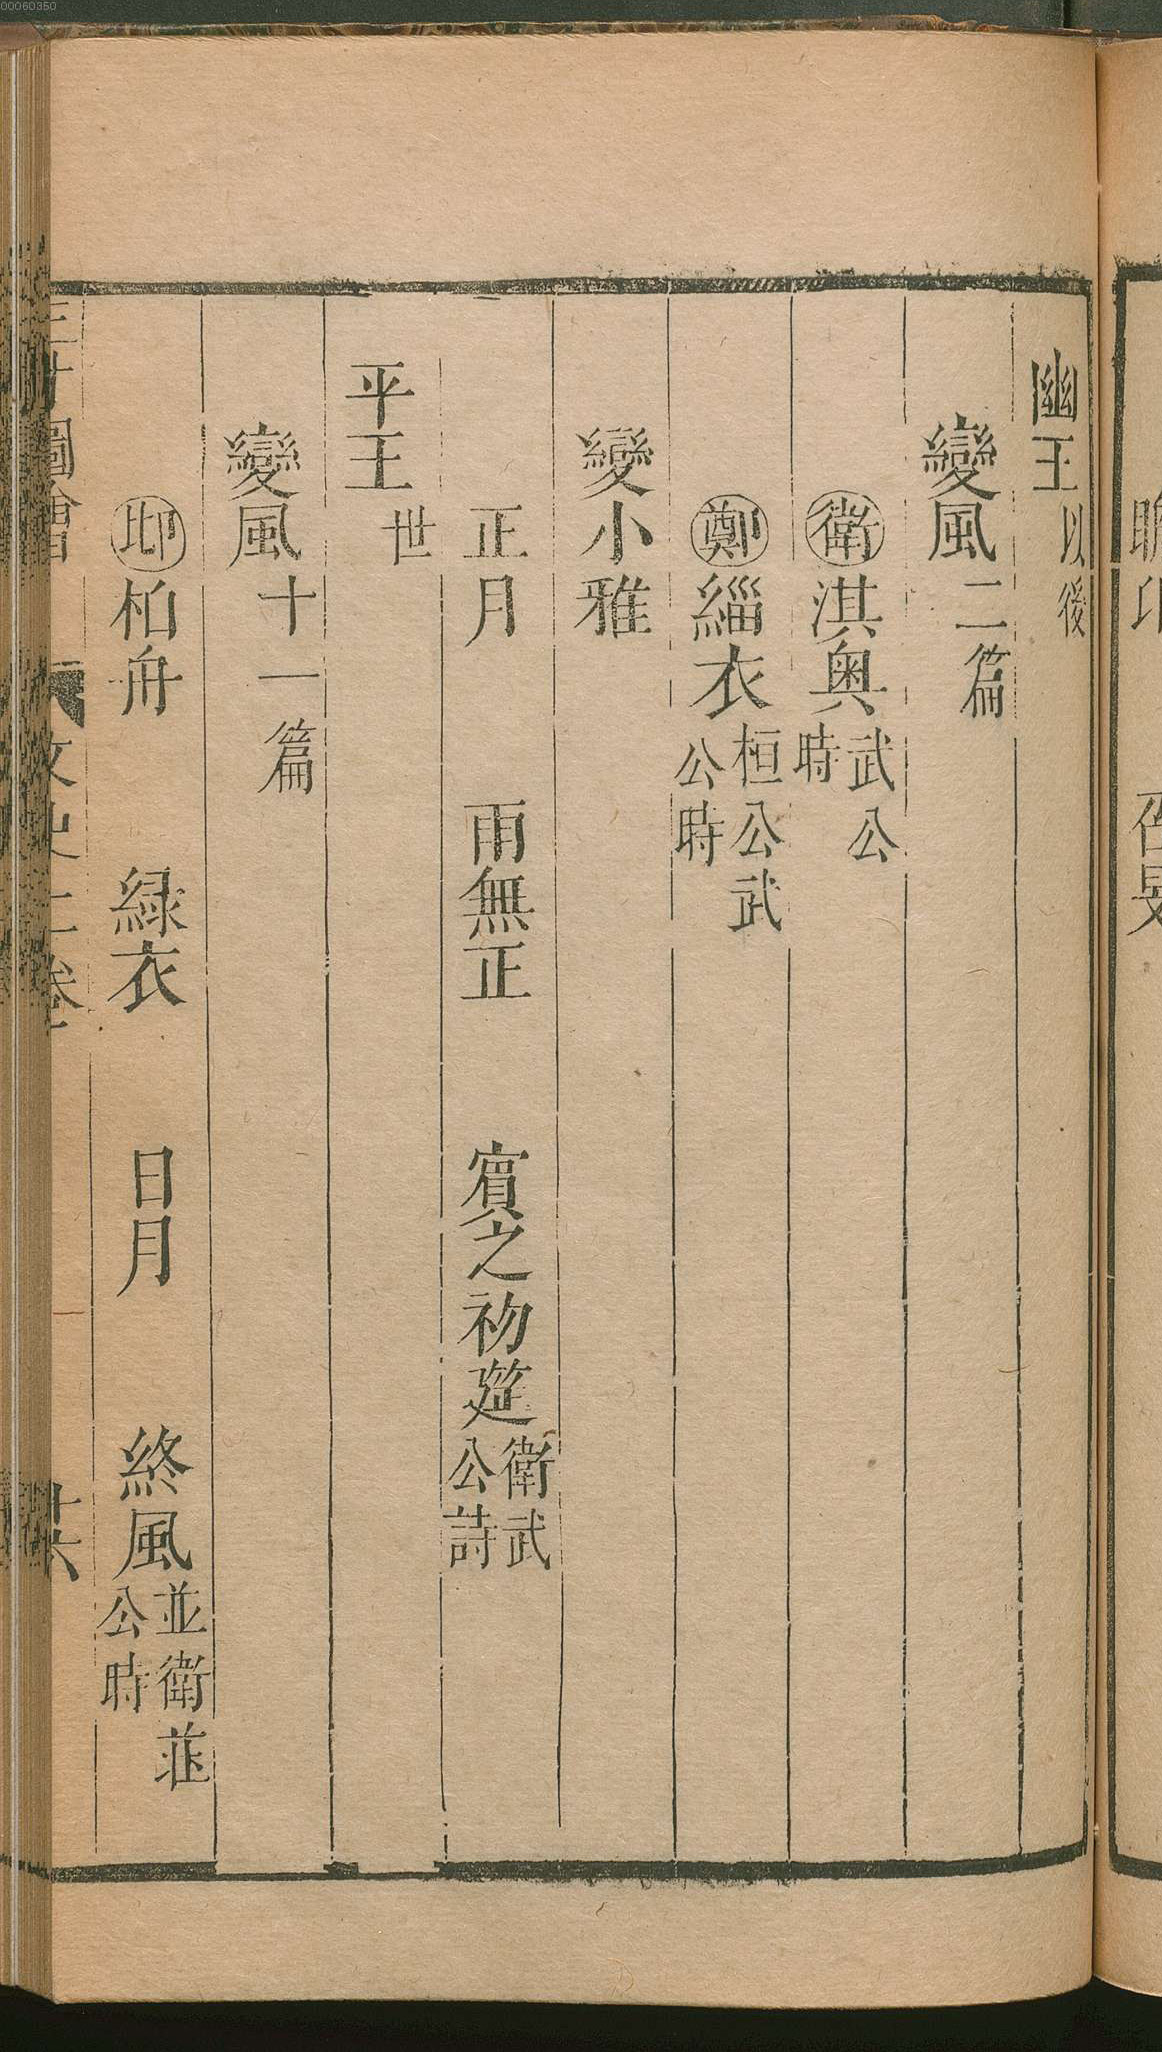 幽王以後
變風二篇
衛淇奥武公時
鄭緇衣桓公武公時
變小雅
正月　雨無正　賔之初筵衛武公詩
平王世
變風十一篇
邶柏舟　緑衣　日月　終風並衛莊公時
三才圖會　文史二卷
00060350